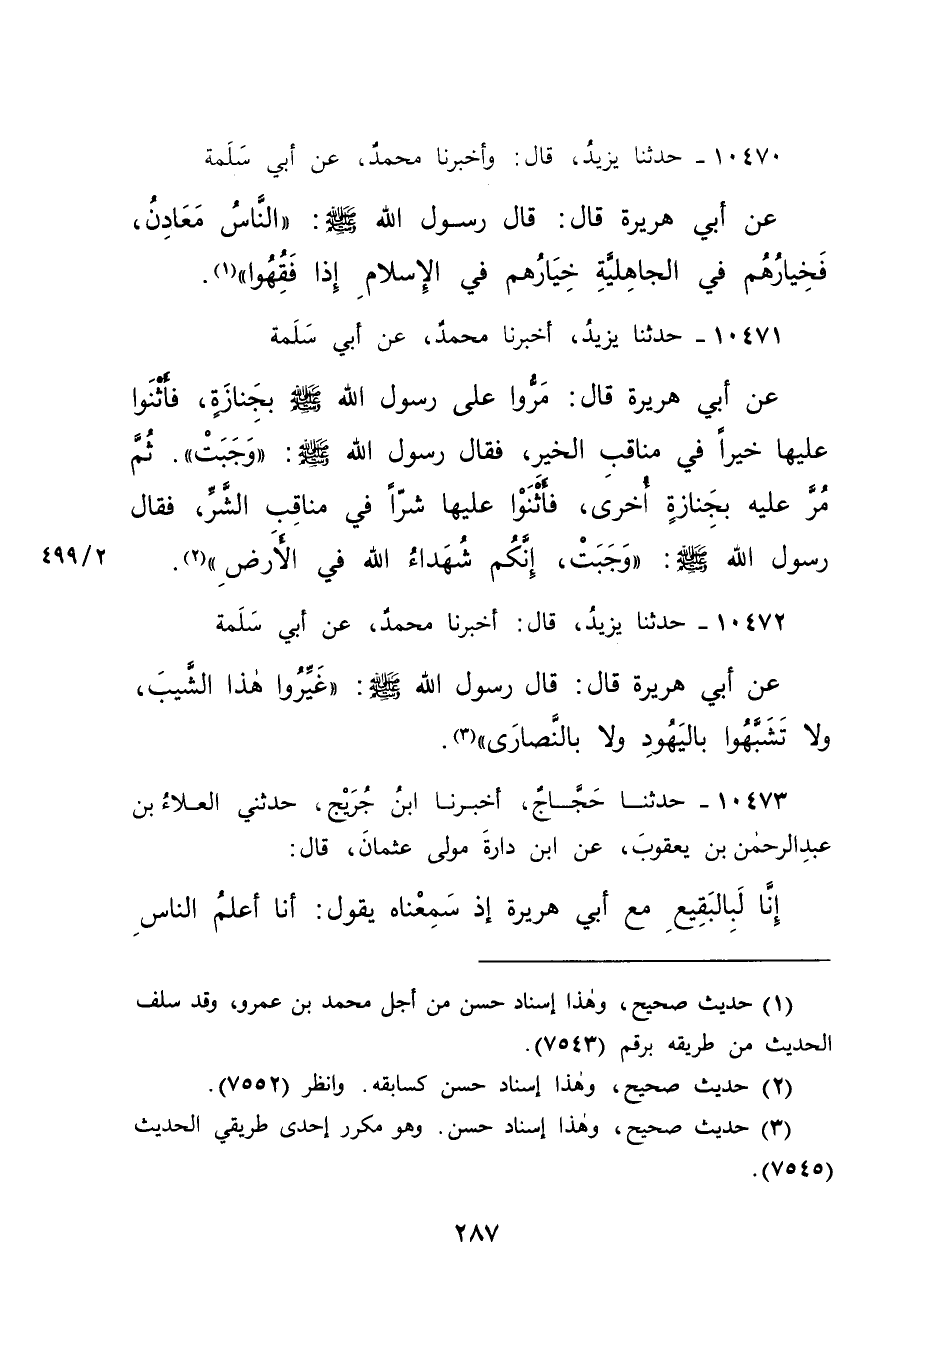 ١٠٤٧٠ - حدثنا يزيدُ، قال: وأخبرنا محمدٌ، عن أبي سَلَمة
عن أبي هريرة قال: قال رسول الله ﷺ: «النَّاسُ مَعَادِنُ،
فَخِيارُهُم في الجاهِليَّةِ خِيَارُهم في الإِسلامِ إِذا فَقُهُوا»(١).
١٠٤٧١ - حدثنا يزيدُ، أخبرنا محمدٌ، عن أبي سَلَمة
عن أبي هريرة قال: مَرُّوا على رسول الله ﷺ بجَنازَةٍ، فأَثْنَوا
عليها خيراً في مناقبِ الخير، فقال رسول الله ﷺ: «وَجَبَتْ». ثُمَّ
مُرَّ عليه بجَنازةٍ أُخرى، فأَثْنَوْا عليها شرّاً في مناقِبِ الشَّرِّ، فقال
رسول الله ﷺ: «وَجَبَتْ، إِنَّكُم شُهَداءُ الله في الأَرضِ»(٢).
٤٩٩/٢
١٠٤٧٢ - حدثنا يزيدُ، قال: أخبرنا محمدٌ، عن أبي سَلَمة
عن أبي هريرة قال: قال رسول الله ﷺ: «غَيِّرُوا هٰذا الشَّيبَ،
ولا تَشَبَّهُوا باليَهُودِ ولا بالنَّصارَى»(٣).
١٠٤٧٣ - حدثنا حَجَّاجٌ، أخبرنا ابنُ جُرَيْج، حدثني العلاءُ بن
عبدِالرحمٰن بن يعقوبَ، عن ابن دارةَ مولى عثمانَ، قال:
إِنَّا لَبِالبَقِيعِ مع أبي هريرة إذ سَمِعْناه يقول: أنا أعلمُ الناسِ
(١) حديث صحيح، وهٰذا إسناد حسن من أجل محمد بن عمرو، وقد سلف
الحديث من طريقه برقم (٧٥٤٣).
(٢) حديث صحيح، وهٰذا إسناد حسن كسابقه. وانظر (٧٥٥٢).
(٣) حديث صحيح، وهٰذا إسناد حسن. وهو مكرر إحدى طريقي الحديث
(٧٥٤٥).
٢٨٧